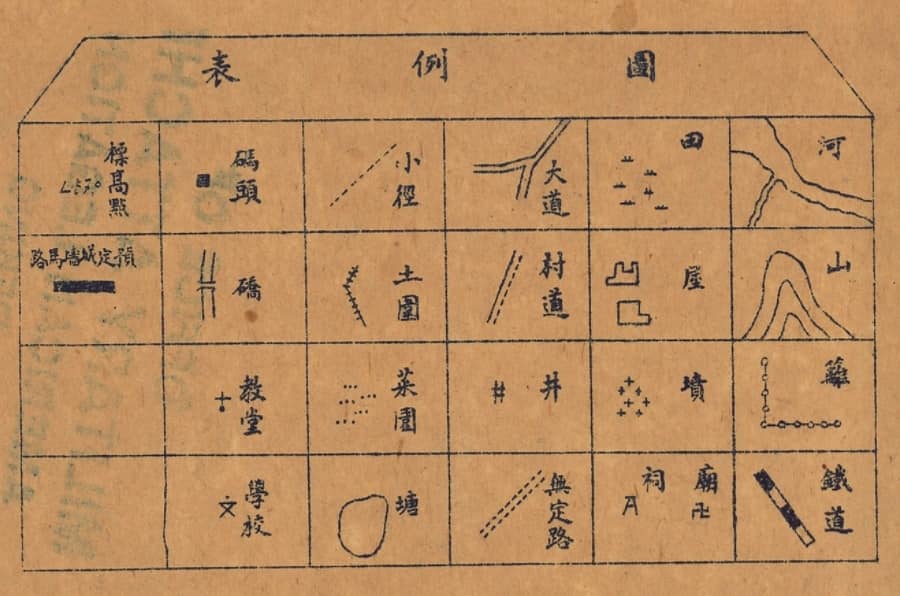 圖例表
河
田
大道
小徑
碼頭
標高點
山
屋
村道
土圍
礄
預定城墻馬路
籬
墳
井
菜園
教堂
鐵道
廟
祠
無定路
塘
學校